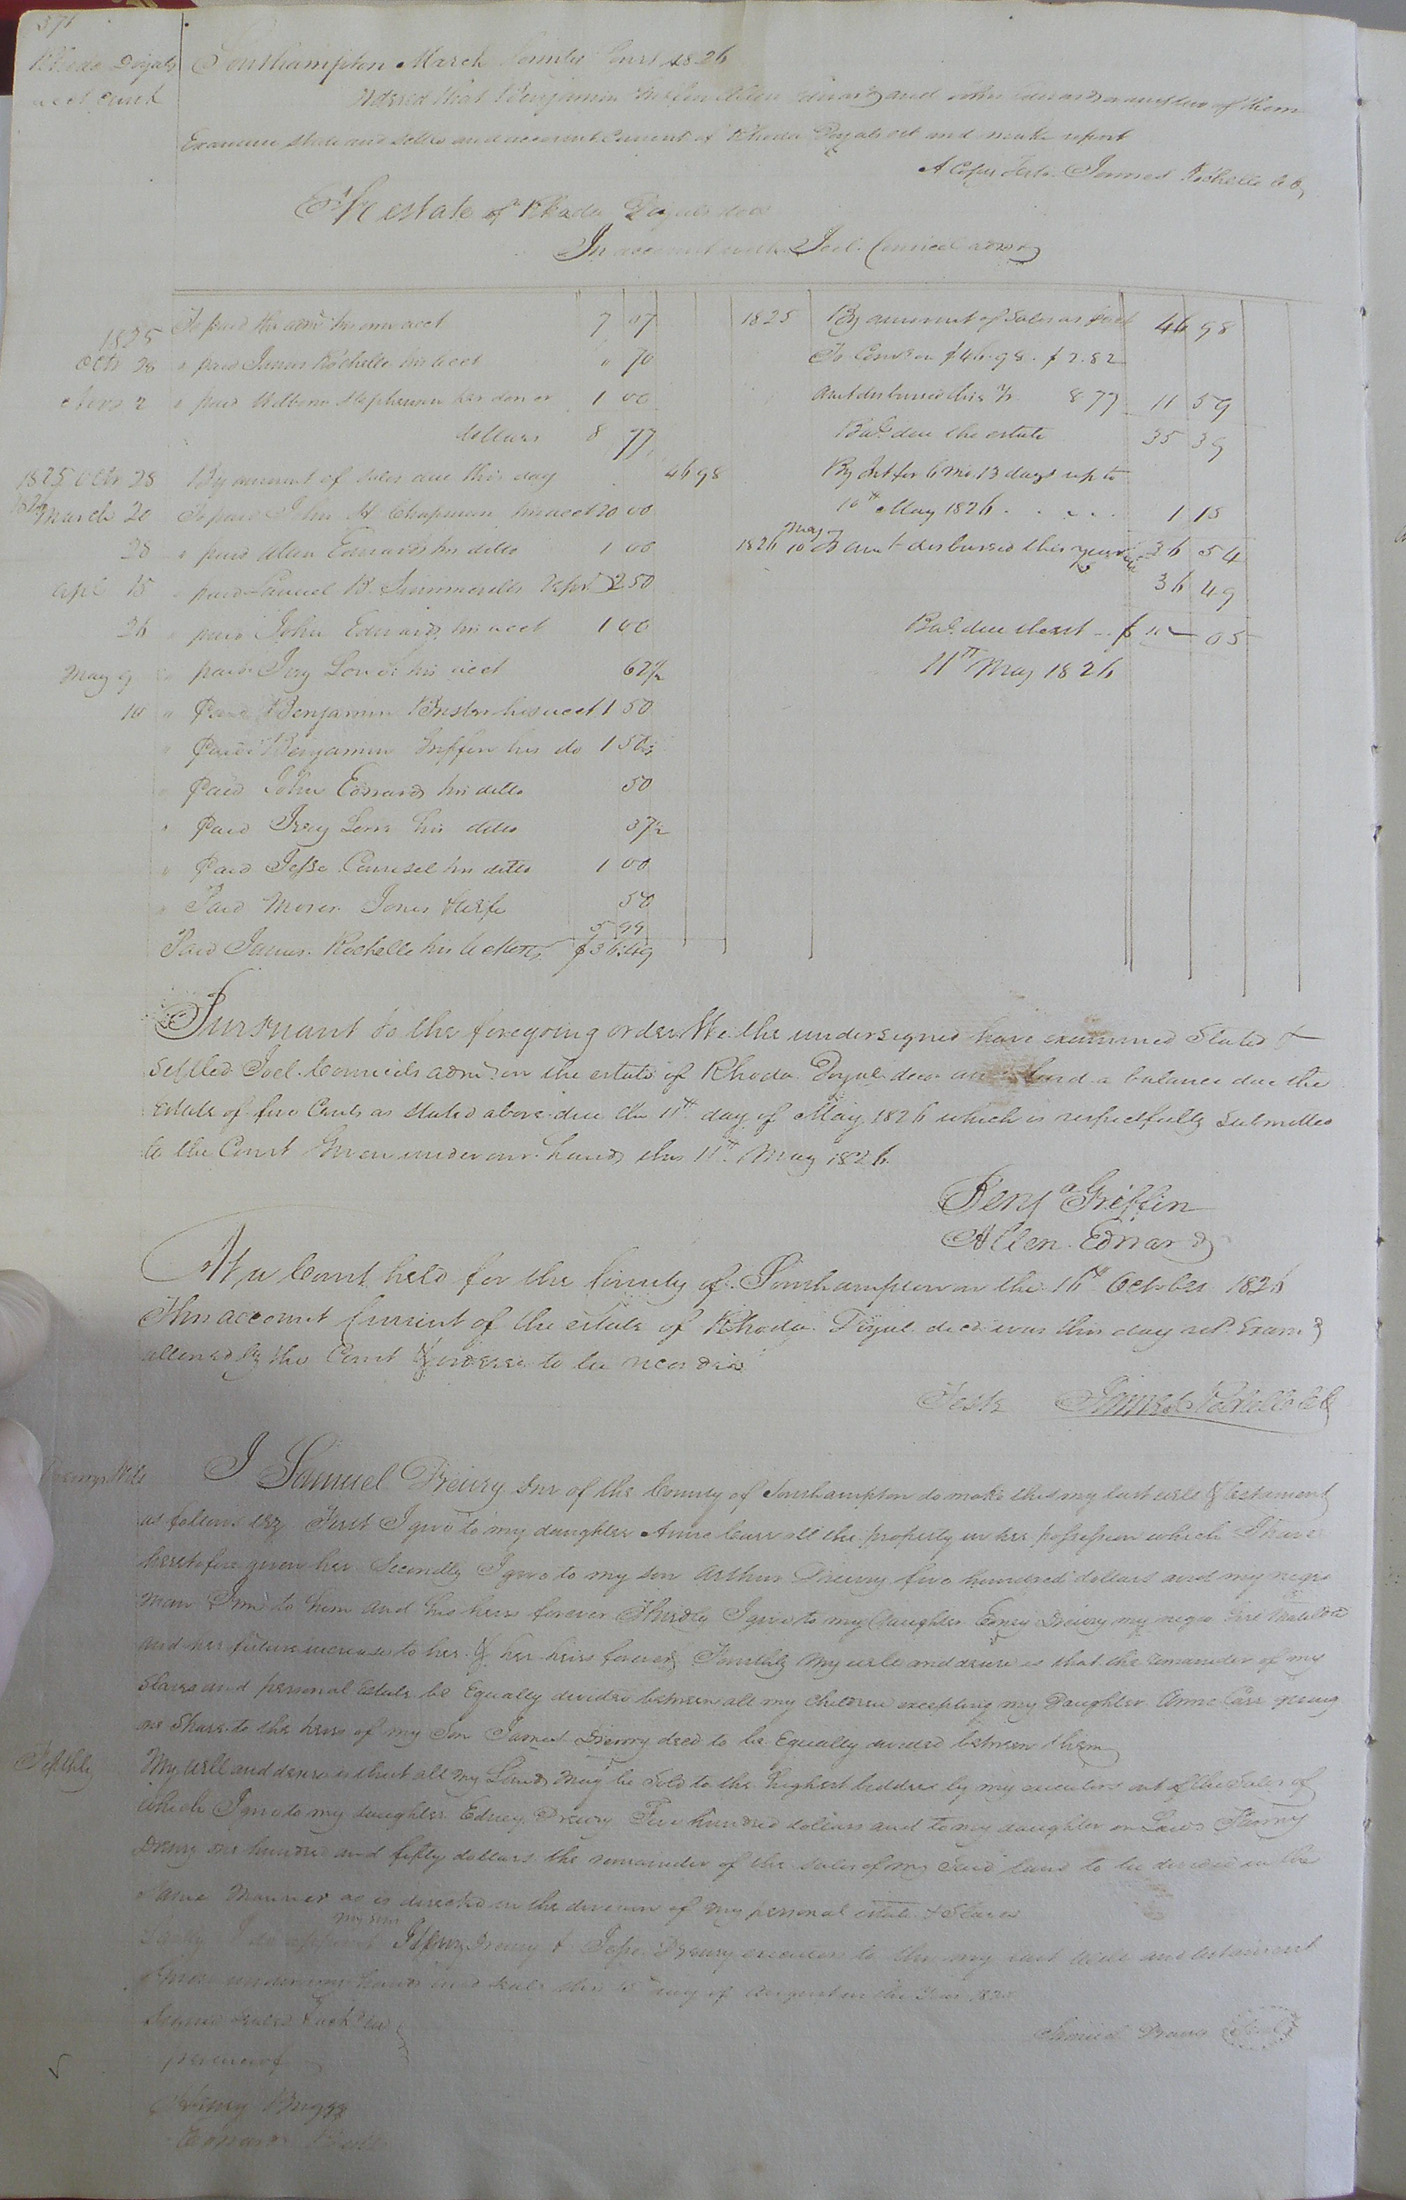 371
Rhoda Doyals
acct Currt
Southampton March County Court 1826
Ordered that Benjamin Griffin Allen Edwards and John Edwards or any two of them
Examine State and Settle and account Current of Rhoda Doyals est and make report
A Copy Teste James Rochelle C C
The estate of Rhoda Doyals decd
In account with Joel Council admr
1825 To paid the admr his own acct 7 07
Octr 28 " paid James Rochelle his acct " 70
" paid Stephenson 1 00
dollars 8 77
1825 Octr 28 By amount of Sales due this day 46 98
1826 March 20 To paid John H Chapman his acct 20 00
28 " paid Allen Edwards his ditto 1 00
Apl 15 " paid Samuel B. 2 50
26 " paid John Edwards his acct 1 00
May 9 " paid his acct 62 1/2
10 " Paid Benjamin his acct 1 50
" Paid Benjamin Griffin his do 1 50
" Paid John Edwards his ditto 50
" Paid his ditto 37 1/2
" Paid Jesse Councel his ditto 1 00
" Paid Moses Jones & wife 50
Paid James Rochelle his tickets 5 99
$36.49
1825 By amount of Sales as 46 98
To Comn on $46.98 - $2.82
Amt disbursed this yr 8 77 11 59
Bale due the estate 35 39
By Int for 6 mo. 13 days up to
10th May 1826 1 15
36 54
1826 May 10 To amt disbursed this year 36 49
Bale due the est - $ " 05
11th May 1826
Pursuant to the foregoing order We the undersigned have examined Stated &
Settled Joel Councils admr on the estate of Rhoda Doyal decd and find a balance due the
estate of five Cents as stated above due the 11th day of May 1826 which is respectfully submitted
to the Court Given under our hands this 11th May 1826.
Benja Griffin
Allen Edwards
At a Court held for the County of Southampton on the 16th October 1826
This account Current of the estate of Rhoda Doyal decd was this day retd Examd &
allowed by the Court & ordered to be recorded
Teste James Rochelle C C
Drewrys Will
I Samuel Drewry Snr of the County of Southampton do make this my last will & testament
as follows Viz First I give to my daughter Anne Carr all the property in her possession which I have
heretofore given her Secondly I give to my son Arthur Drewry five hundred dollars and my negro
man to him and his heirs forever Thirdly I give to my daughter Edney Drewry my negro Girl Matilda
and her future increase to her & her heirs forever Fourthly My will and desire is that the remainder of my
Slaves and personal estate be Equally divided between all my Children excepting my Daughter Anne Carr giving
one Share to the heirs of my Son James Drewry decd to be Equally divided between them
Fifthly My will and desire is that all my Land may be Sold to the highest bidder by my executors out of the Sales of
which I give to my daughter Edney Drewry Five hundred dollars and to my daughter in Law Fanny
Drewry one hundred and fifty dollars the remainder of the Sales of my Said land to be divided in the
Same Manner as is directed in the division of my personal estate & Slaves
Lastly I do appoint my son Drewry & Jesse Drewry executors to this my last will and testament
Given under my hand and Seal this 15 day of August in the Year
Signed Sealed & ackd in
presence of
Samuel Drewry Seal
Henry Briggs
Edward